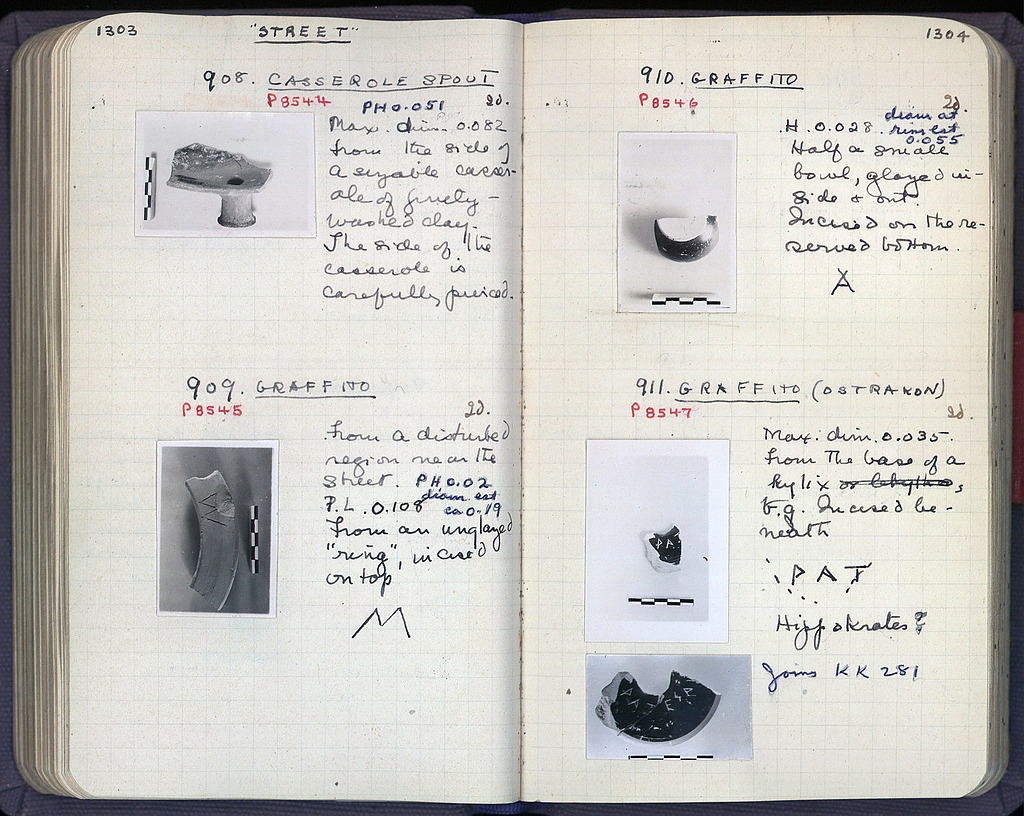 1303
"STREET"
908. CASSEROLE SPOUT
P 8544 PH 0.051 2d.
Max. dim. 0.082
From the side of
a sizable casser-
ole of
washed clay.
The side of the
casserole is
carefully pierced.
909. GRAFFITO
P 8545
2d.
From a disturbed
region near the
Street. PH 0.02
diam est
P.L. 0.108 ca 0.19
From an unglazed
"ring", incised
on top
M
1304
910. GRAFFITO
P 8546
2d.
H. 0.028. diam at
rim est
0.055
Half a small
bowl, glazed in-
side & out.
Incised on the re-
served bottom.
A
911. GRAFFITO (OSTRAKON)
P 8547
2d.
Max. dim. 0.035.
From the base of a
kylix or lekythos,
b.g. Incised be-
neath
ΡΑΤ
Hippokrates?
Joins KK 281